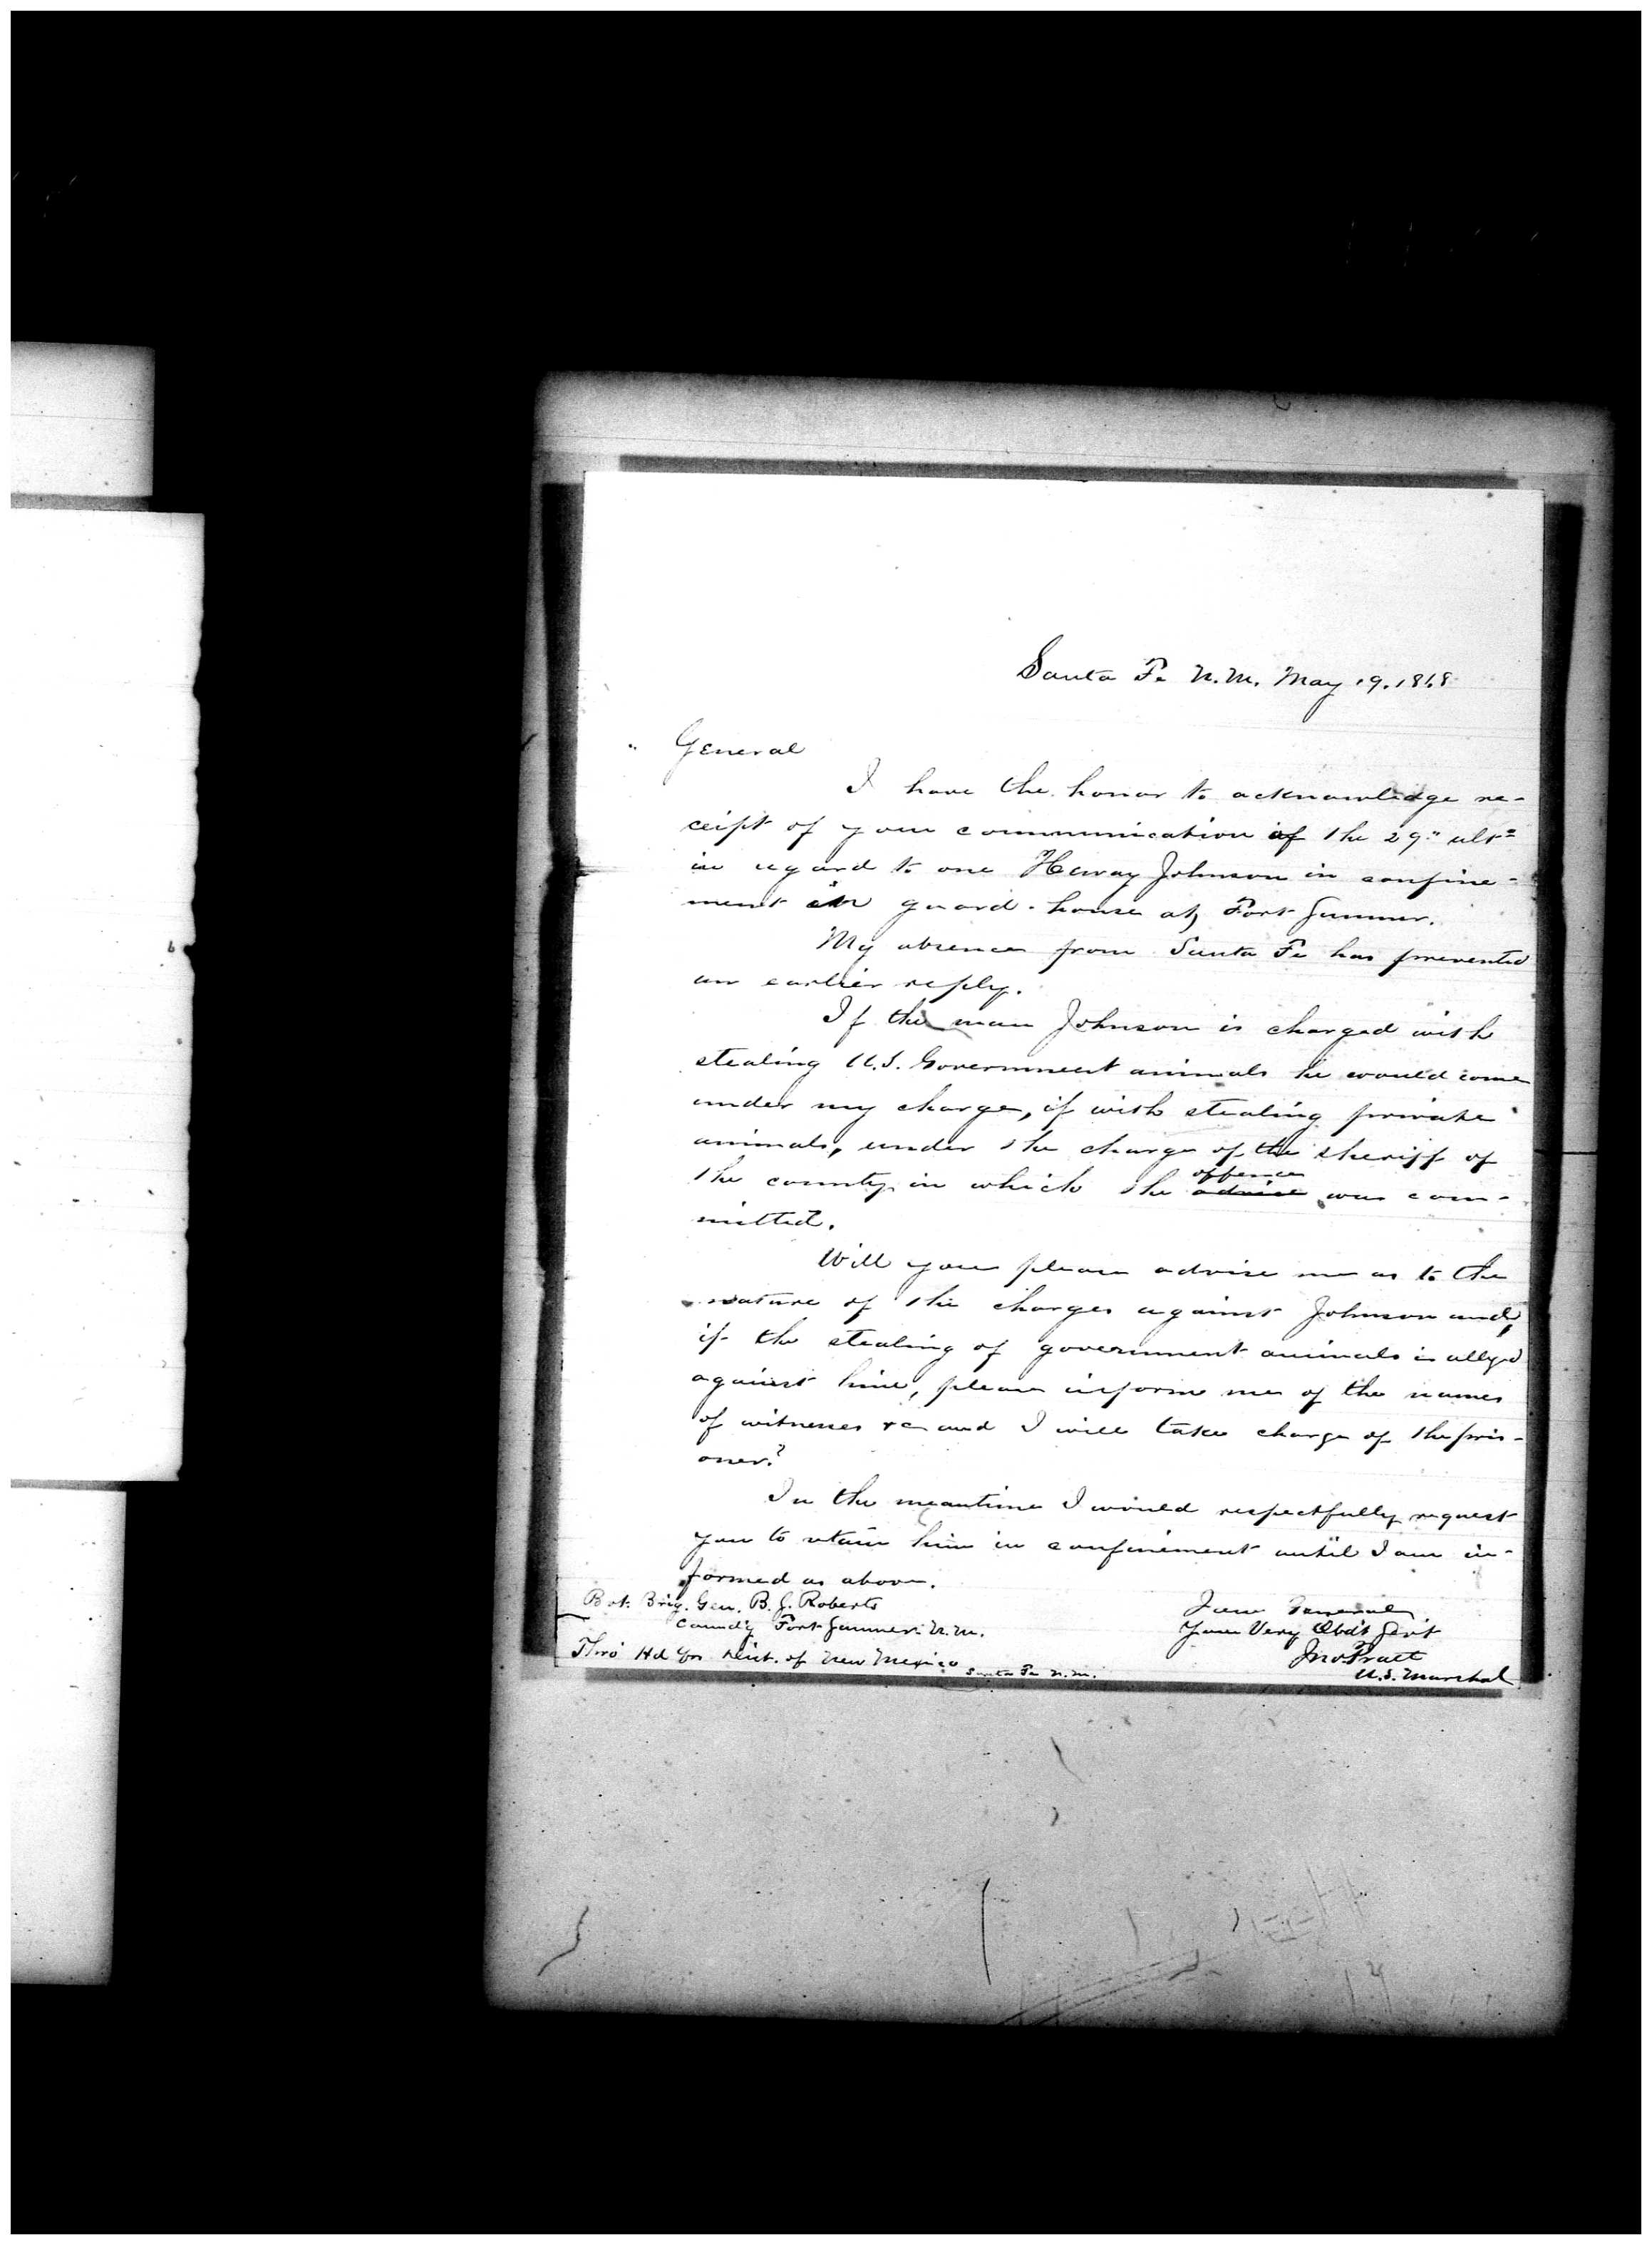 Santa Fe N.M. May 19. 1868
General
I have the honor to acknowledge re-
ceipt of your communication of the 29" ulto
in regard to one Harvay Johnson in confine-
ment in guard-house at Fort Sumner.
My absence from Santa Fe has prevented
an earlier reply.
If the man Johnson is charged with
stealing U.S. Government animals he would come
under my charge, if with stealing private
animals, under the charge of the sheriff of
offence
the county in which the advice was com-
mitted.
Will you please advise me as to the
nature of the charges against Johnson and,
if the stealing of government animals is alleged
against him, please inform me of the names
of witnesses &c and I will take charge of the pris-
oner?
In the meantime I would respectfully request
you to retain him in confinement until I am in-
formed as above.
Bvt. Brig. Gen. B. S. Roberts
Comm'd'g Fort Sumner N.M.
Thro' Hd Qrs Dist. of New Mexico
Santa Fe N.M.
I am General
Your Very Obd't Serv't
Jno Pratt
U.S. Marshal